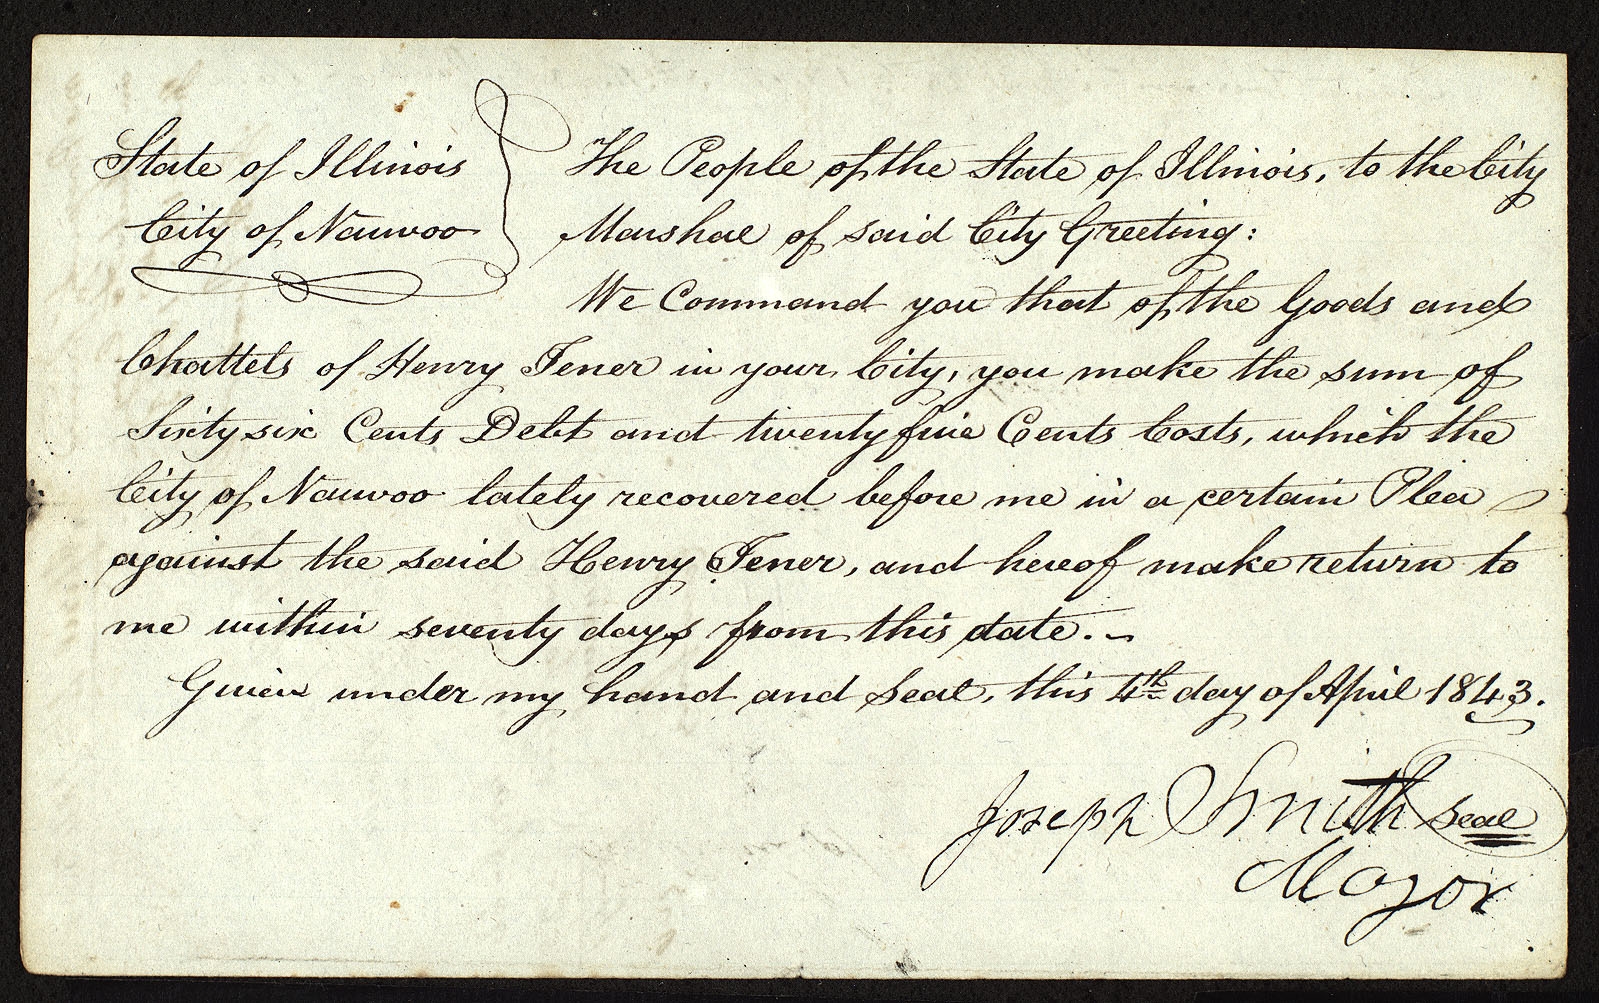 State of Illinois
City of Nauvoo
The People of the State of Illinois, to the City
Marshal of said City Greeting:
We Command you that of the Goods and
Chattels of Henry Tener in your City, you make the sum of
Sixty six Cents Debt and twenty five Cents Costs, which the
City of Nauvoo lately recovered before me in a certain Plea
against the said Henry Tener, and hereof make return to
me within seventy days from this date.
Given under my hand and Seal, this 4th day of April 1843.
Joseph Smith Seal
Mayor